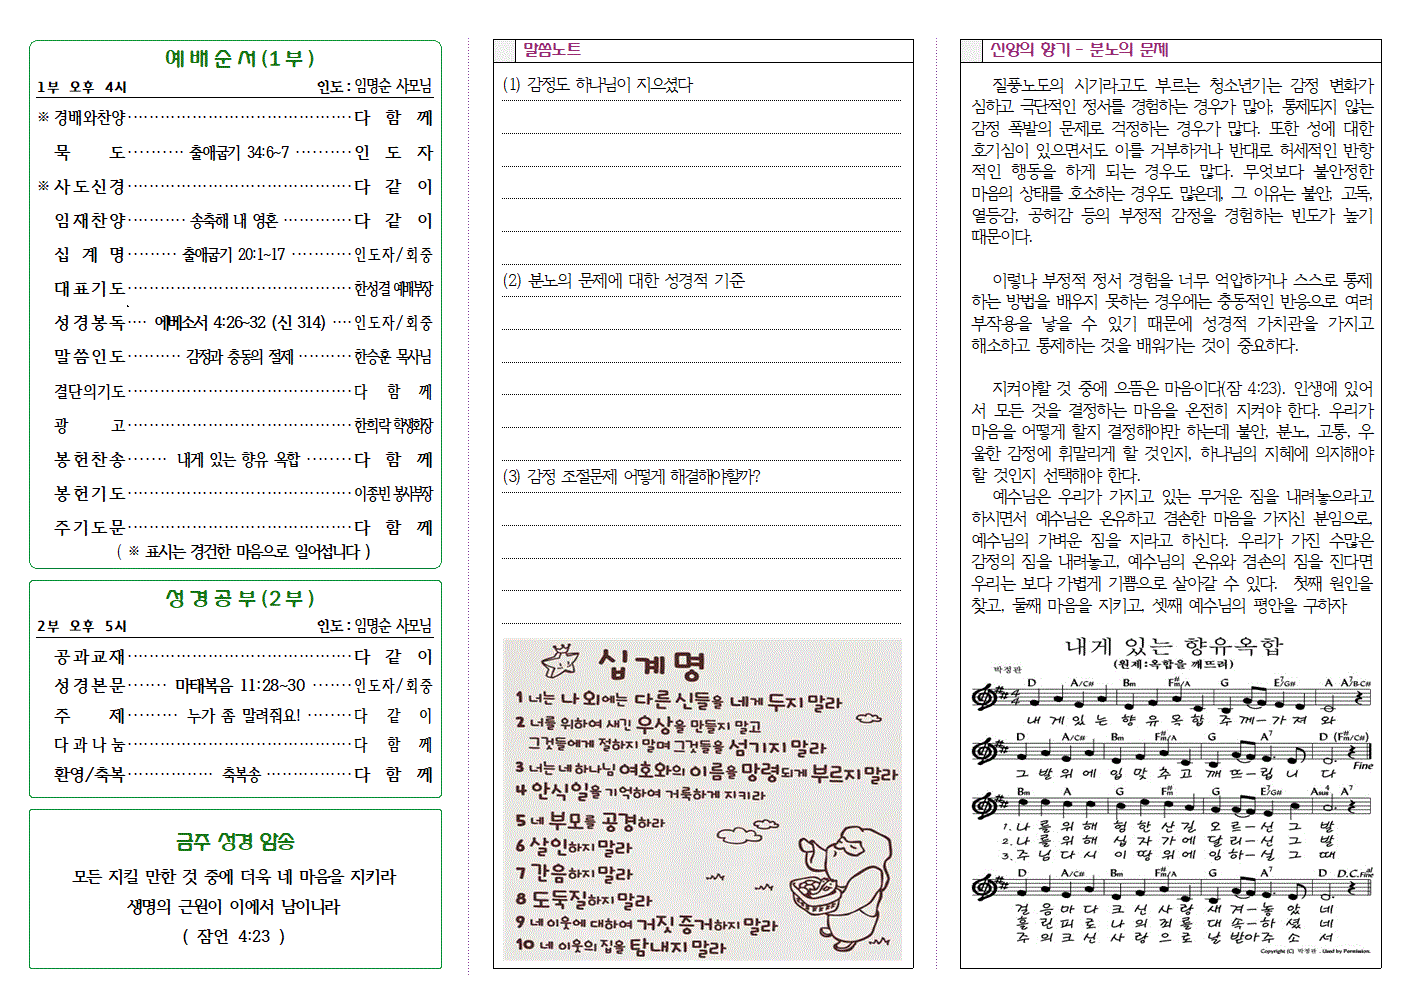 예배순서(1부)
1부 오후 4시 인도 : 임명순 사모님
※ 경배와찬양 ········································ 다 함 께
묵 도 ·········· 출애굽기 34:6~7 ·········· 인 도 자
※ 사도신경 ········································ 다 같 이
임재찬양 ··········· 송축해 내 영혼 ············ 다 같 이
십 계 명 ········· 출애굽기 20:1~17 ··········· 인도자/회중
대표기도 ········································ 한성결 예배부장
성경봉독 ···· 에베소서 4:26~32 (신 314) ···· 인도자/회중
말씀인도 ·········· 감정과 충동의 절제 ·········· 한승훈 목사님
결단의기도 ········································ 다 함 께
광 고 ········································ 한희락 학생회장
봉헌찬송 ······· 내게 있는 향유 옥합 ········ 다 함 께
봉헌기도 ········································ 이종빈 봉사부장
주기도문 ········································ 다 함 께
( ※ 표시는 경건한 마음으로 일어섭니다 )
성경공부(2부)
2부 오후 5시 인도 : 임명순 사모님
공과교재 ········································ 다 같 이
성경본문 ······· 마태복음 11:28~30 ······· 인도자/회중
주 제 ········· 누가 좀 말려줘요! ········ 다 같 이
다과나눔 ········································ 다 함 께
환영/축복 ··············· 축복송 ··············· 다 함 께
금주 성경 암송
모든 지킬 만한 것 중에 더욱 네 마음을 지키라
생명의 근원이 이에서 남이니라
( 잠언 4:23 )
말씀노트
(1) 감정도 하나님이 지으셨다
(2) 분노의 문제에 대한 성경적 기준
(3) 감정 조절문제 어떻게 해결해야할까?
십계명
1 너는 나 외에는 다른 신들을 네게 두지 말라
2 너를 위하여 새긴 우상을 만들지 말고
그것들에게 절하지 말며 그것들을 섬기지 말라
3 너는 네 하나님 여호와의 이름을 망령되게 부르지 말라
4 안식일을 기억하여 거룩하게 지키라
5 네 부모를 공경하라
6 살인하지 말라
7 간음하지 말라
8 도둑질하지 말라
9 네 이웃에 대하여 거짓 증거하지 말라
10 네 이웃의 집을 탐내지 말라
신앙의 향기 - 분노의 문제
질풍노도의 시기라고도 부르는 청소년기는 감정 변화가
심하고 극단적인 정서를 경험하는 경우가 많아, 통제되지 않는
감정 폭발의 문제로 걱정하는 경우가 많다. 또한 성에 대한
호기심이 있으면서도 이를 거부하거나 반대로 허세적인 반항
적인 행동을 하게 되는 경우도 많다. 무엇보다 불안정한
마음의 상태를 호소하는 경우도 많은데, 그 이유는 불안, 고독,
열등감, 공허감 등의 부정적 감정을 경험하는 빈도가 높기
때문이다.
이렇나 부정적 정서 경험을 너무 억압하거나 스스로 통제
하는 방법을 배우지 못하는 경우에는 충동적인 반응으로 여러
부작용을 낳을 수 있기 때문에 성경적 가치관을 가지고
해소하고 통제하는 것을 배워가는 것이 중요하다.
지켜야할 것 중에 으뜸은 마음이다(잠 4:23). 인생에 있어
서 모든 것을 결정하는 마음을 온전히 지켜야 한다. 우리가
마음을 어떻게 할지 결정해야만 하는데 불안, 분노, 고통, 우
울한 감정에 휘말리게 할 것인지, 하나님의 지혜에 의지해야
할 것인지 선택해야 한다.
예수님은 우리가 가지고 있는 무거운 짐을 내려놓으라고
하시면서 예수님은 온유하고 겸손한 마음을 가지신 분임으로,
예수님의 가벼운 짐을 지라고 하신다. 우리가 가진 수많은
감정의 짐을 내려놓고, 예수님의 온유와 겸손의 짐을 진다면
우리는 보다 가볍게 기쁨으로 살아갈 수 있다. 첫째 원인을
찾고, 둘째 마음을 지키고, 셋째 예수님의 평안을 구하자
내게 있는 향유옥합
(원제:옥합을 깨뜨려)
박정관
D A/C# Bm F#m/A G E7/G# A A7 B·C#
내 게 있 는 향 유 옥 합 주 께 - 가 져 와
D A/C# Bm F#m/A G A7 D (F#m/C#)
Fine
그 발 위 에 입 맞 추 고 깨 뜨 - 립 니 다
Bm A G F#m G E7/G# Asus4 A7
1. 나 를 위 해 험 한 산 길 오 르 - 신 그 발
2. 나 를 위 해 십 자 가 에 달 리 - 신 그 발
3. 주 님 다 시 이 땅 위 에 임 하 - 실 그 때
D A/C# Bm F#m/A G A7 D D.C. al Fine
걸 음 마 다 크 신 사 랑 새 겨 - 놓 았 네
흘 린 피 로 나 의 죄 를 대 속 - 하 셨 네
주 의 크 신 사 랑 으 로 날 받아 주 소 서
Copyright (C) 박정관 . Used by Permission.